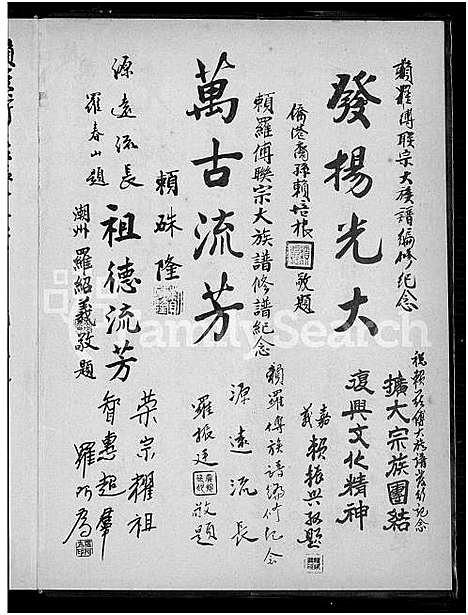 賴羅傅聯宗大族譜編修紀念
發揚光大
僑港裔孫賴培根敬題
賴羅傅聯宗大族譜修譜紀念
萬古流芳
賴硃隆
源遠流長
羅春山題
祖德流芳
潮州羅紹羲敬題
祝賴羅傅大族譜發行紀念
擴大宗族團結
復興文化精神
嘉義賴振興敬題
賴羅傅族譜編修紀念
源遠流長
羅振廷敬題
榮宗耀祖
智惠起羣
羅
FamilySearch